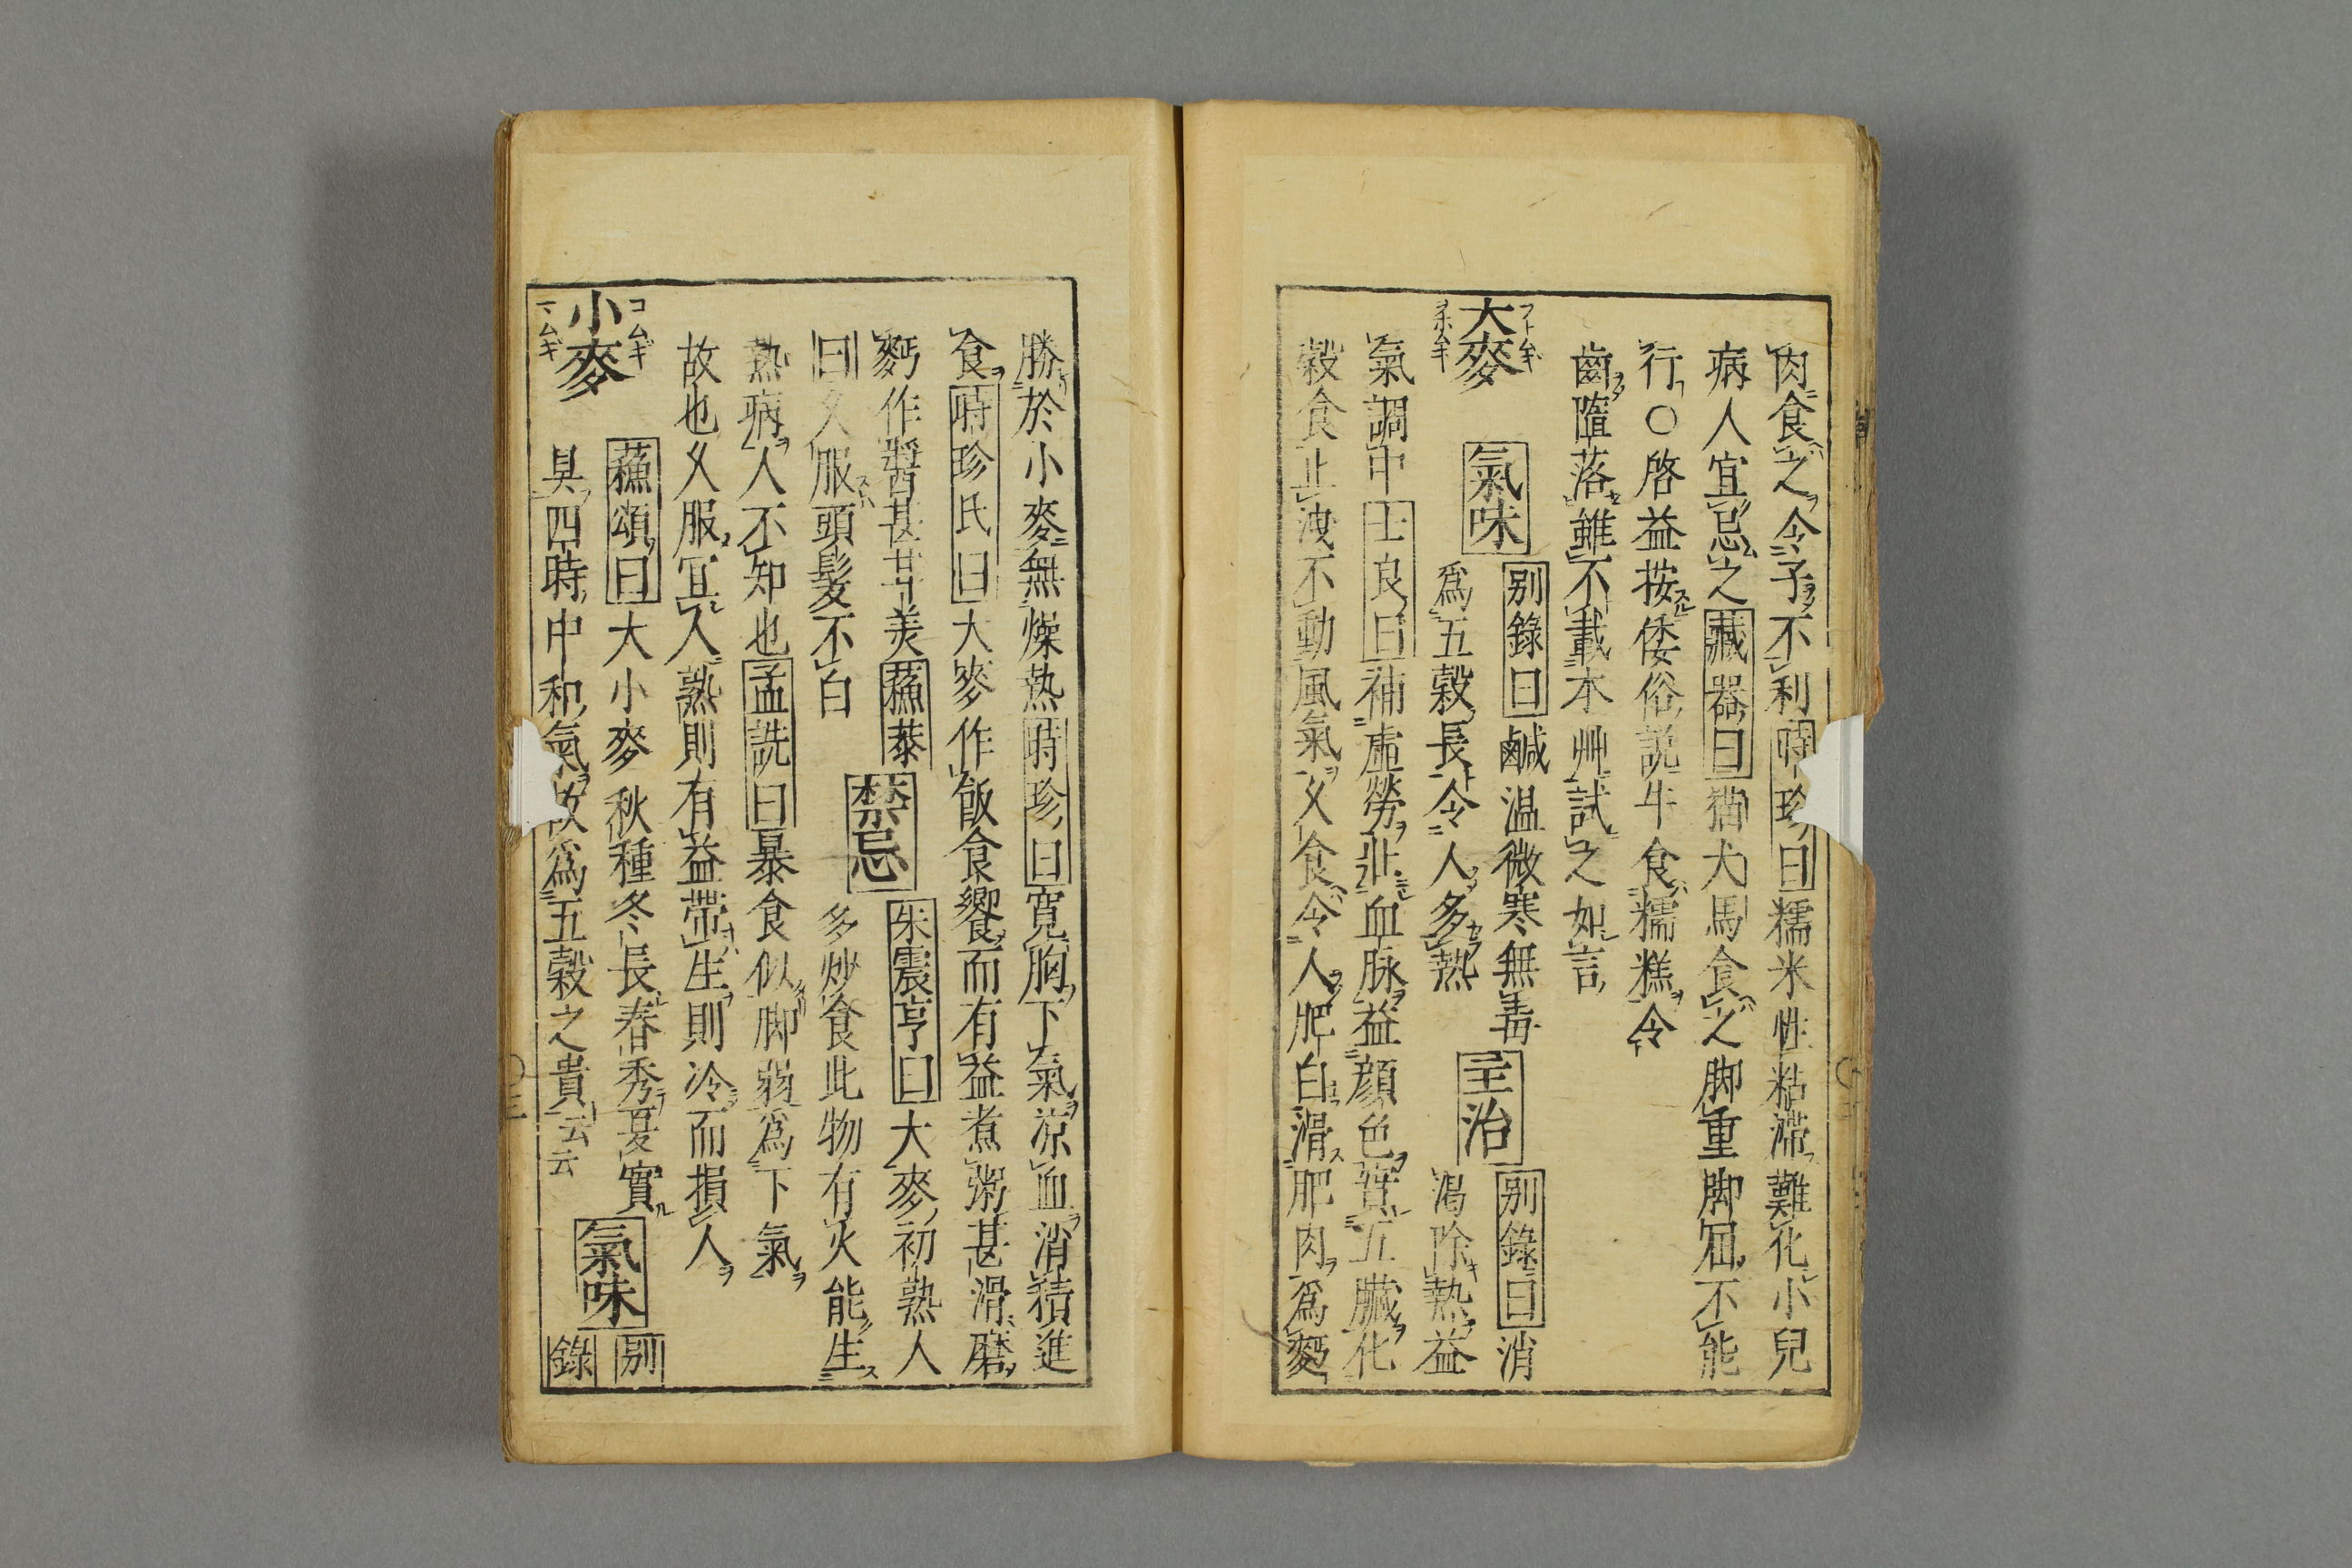 肉食之令子不利時珍曰糯米性粘滯難化小兒
病人宜忌之藏器曰猫犬馬食之脚重脚屈不能
行○啓益按倭俗説牛食糯糕令
齒墮落雖不載本艸試之如言
大麥 フトムギ ヲホムギ 氣味 别錄曰鹹温微寒無毒 主治 别錄曰消
爲五穀長令人多熱 渴除熱益
氣調中士良曰補虛勞壯血脉益顔色實五臟化
穀食止洩不動風氣久食令人肥白滑肥肉爲麪
勝於小麥無燥熱時珍曰寛胸下氣凉血消積進
食時珍氏曰大麥作飯食饗而有益煮粥甚滑磨
麪作醬甚甘美蘓恭 禁忌 朱震亨曰大麥初熟人
曰久服頭髮不白 多炒食此物有火能生
熱病人不知也孟詵曰暴食似脚弱爲下氣
故也久服宜人熟則有益帶生則冷而損人
小麥 コムギ マムギ 蘓頌曰大小麥秋種冬長春秀夏實 氣味 别
具四時中和氣故爲五穀之貴云云 錄